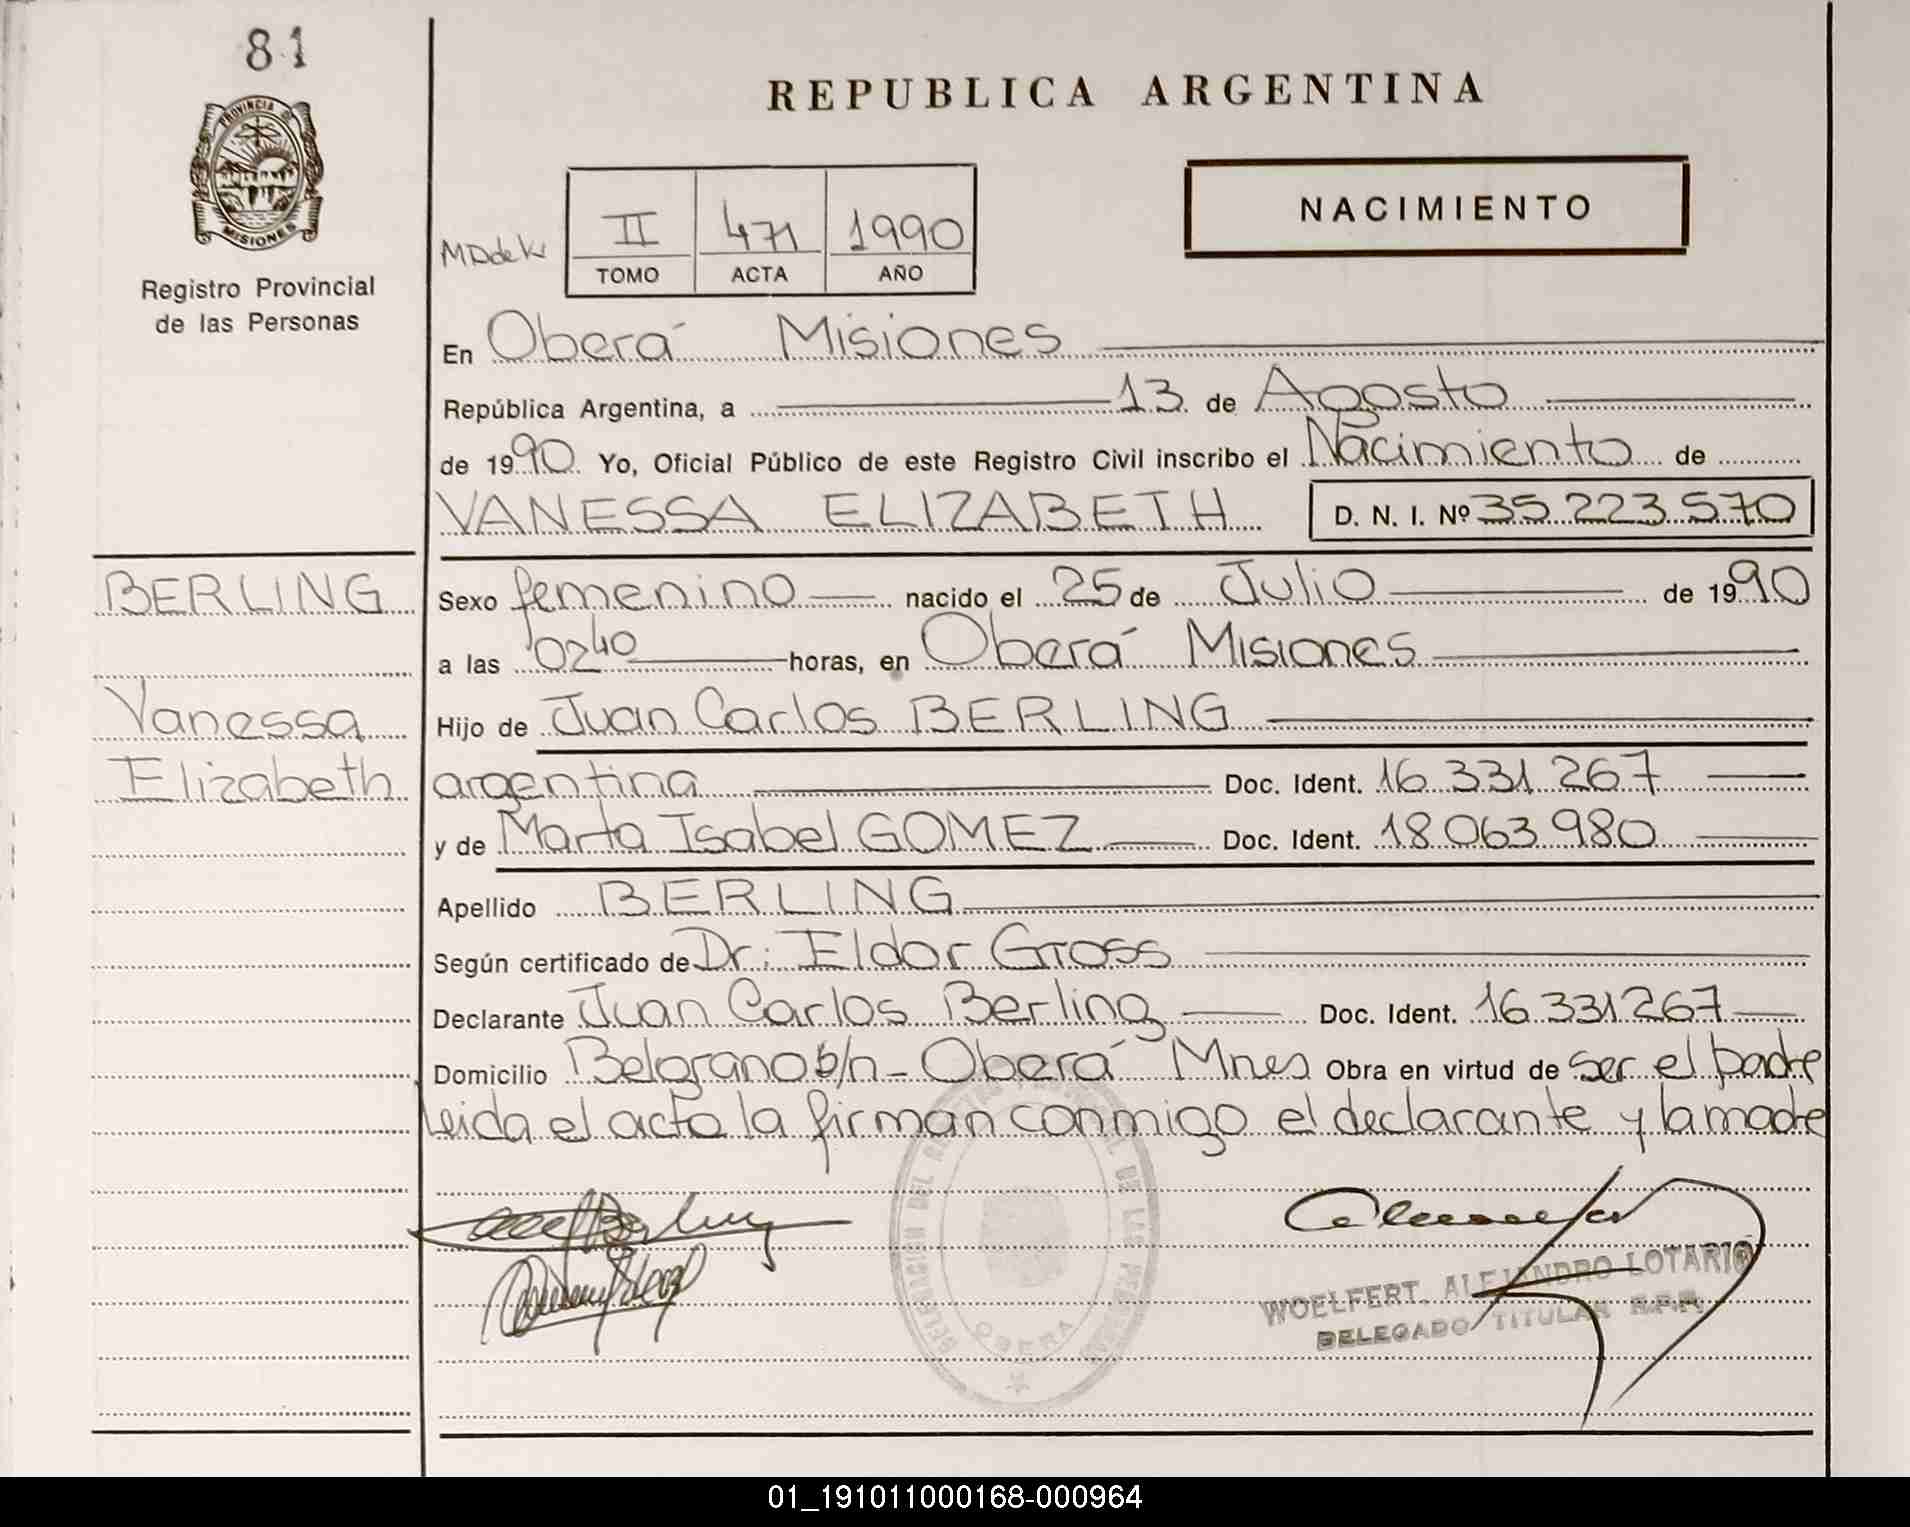 81
PROVINCIA DE
MISIONES
Registro Provincial
de las Personas
BERLING
Vanessa
Elizabeth
REPUBLICA ARGENTINA
NACIMIENTO
II 471 1990
TOMO ACTA AÑO
En Oberá Misiones
República Argentina, a 13 de Agosto
de 1990 Yo, Oficial Público de este Registro Civil inscribo el Nacimiento de
VANESSA ELIZABETH D. N. I. Nº 35.223.570
Sexo femenino nacido el 25 de Julio de 1990
a las 0240 horas, en Oberá Misiones
Hijo de Juan Carlos BERLING
argentina Doc. Ident. 16.331.267
y de Marta Isabel GOMEZ Doc. Ident. 18.063.980
Apellido BERLING
Según certificado de Dr: Eldor Gross
Declarante Juan Carlos Berling Doc. Ident. 16.331267
Domicilio Belgrano s/n - Oberá Mnes Obra en virtud de ser el padre
leida el acta la firman conmigo el declarante y la madre
DELEGACION DEL REGISTRO DE LAS PERSONAS
OBERA
WOELFERT, ALEJANDRO LOTARIO
DELEGADO TITULAR R.P.P.
01_191011000168-000964